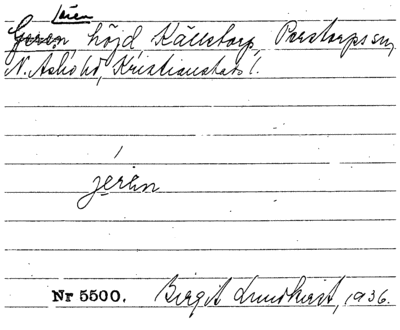 Jären
Geren, höjd Källstorp, Perstorps sn,
N. Åsbo hd, Kristianstads l.
jerän
Nr 5500. Birgit Lundkvist, 1936.